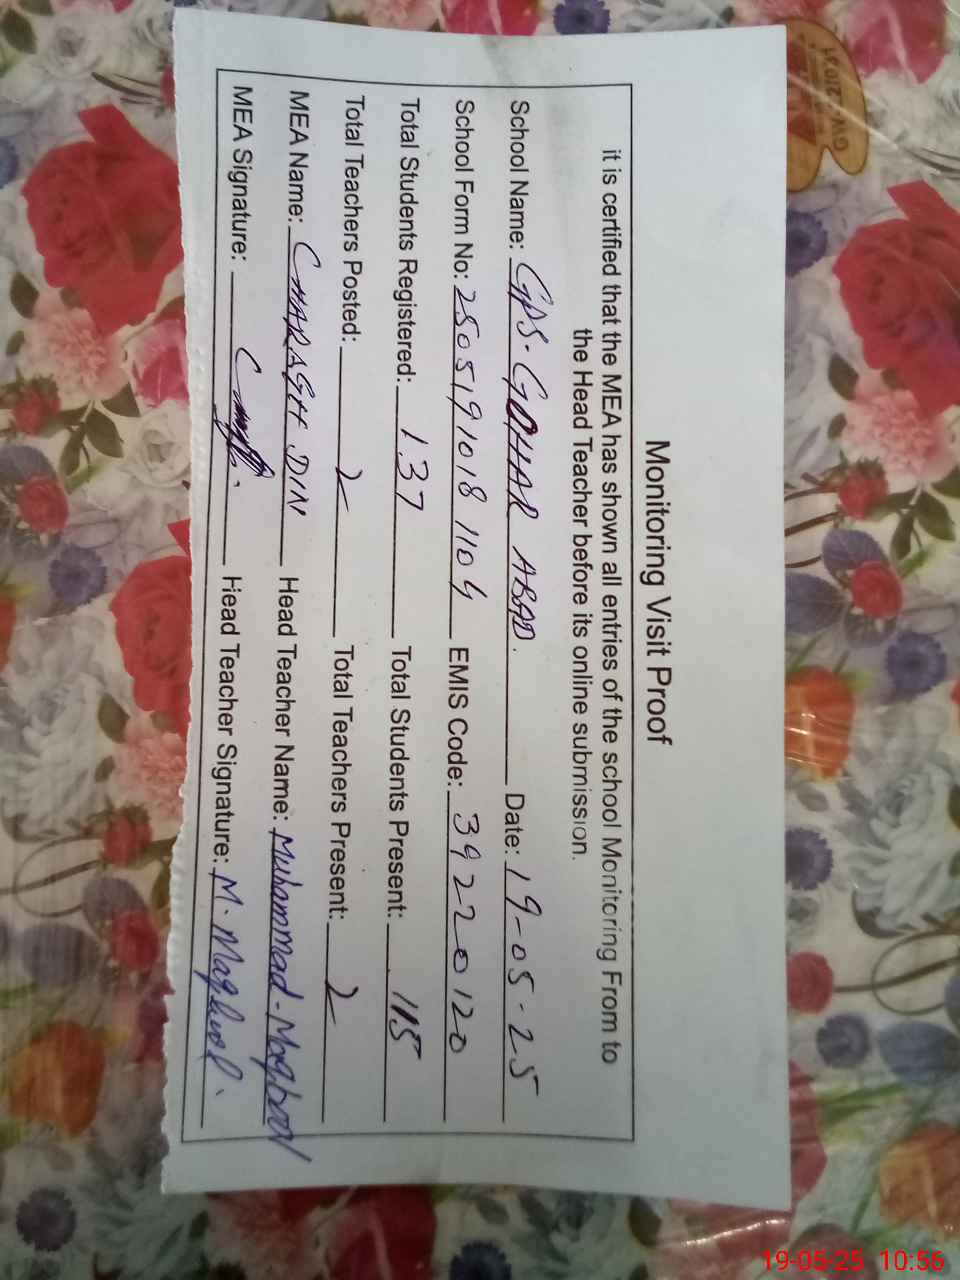 Monitoring Visit Proof
it is certified that the MEA has shown all entries of the school Monitoring From to
the Head Teacher before its online submission.
School Name: GPS-GOHAR ABAD. Date: 19-05-25
School Form No: 25051910181104 EMIS Code: 39220120
Total Students Registered: 137 Total Students Present: 115
Total Teachers Posted: 2 Total Teachers Present: 2
MEA Name: CHARAGH DIN Head Teacher Name: Muhammad-Maqbool
MEA Signature: Head Teacher Signature: M. Maqbool.
19-05-25 10:56